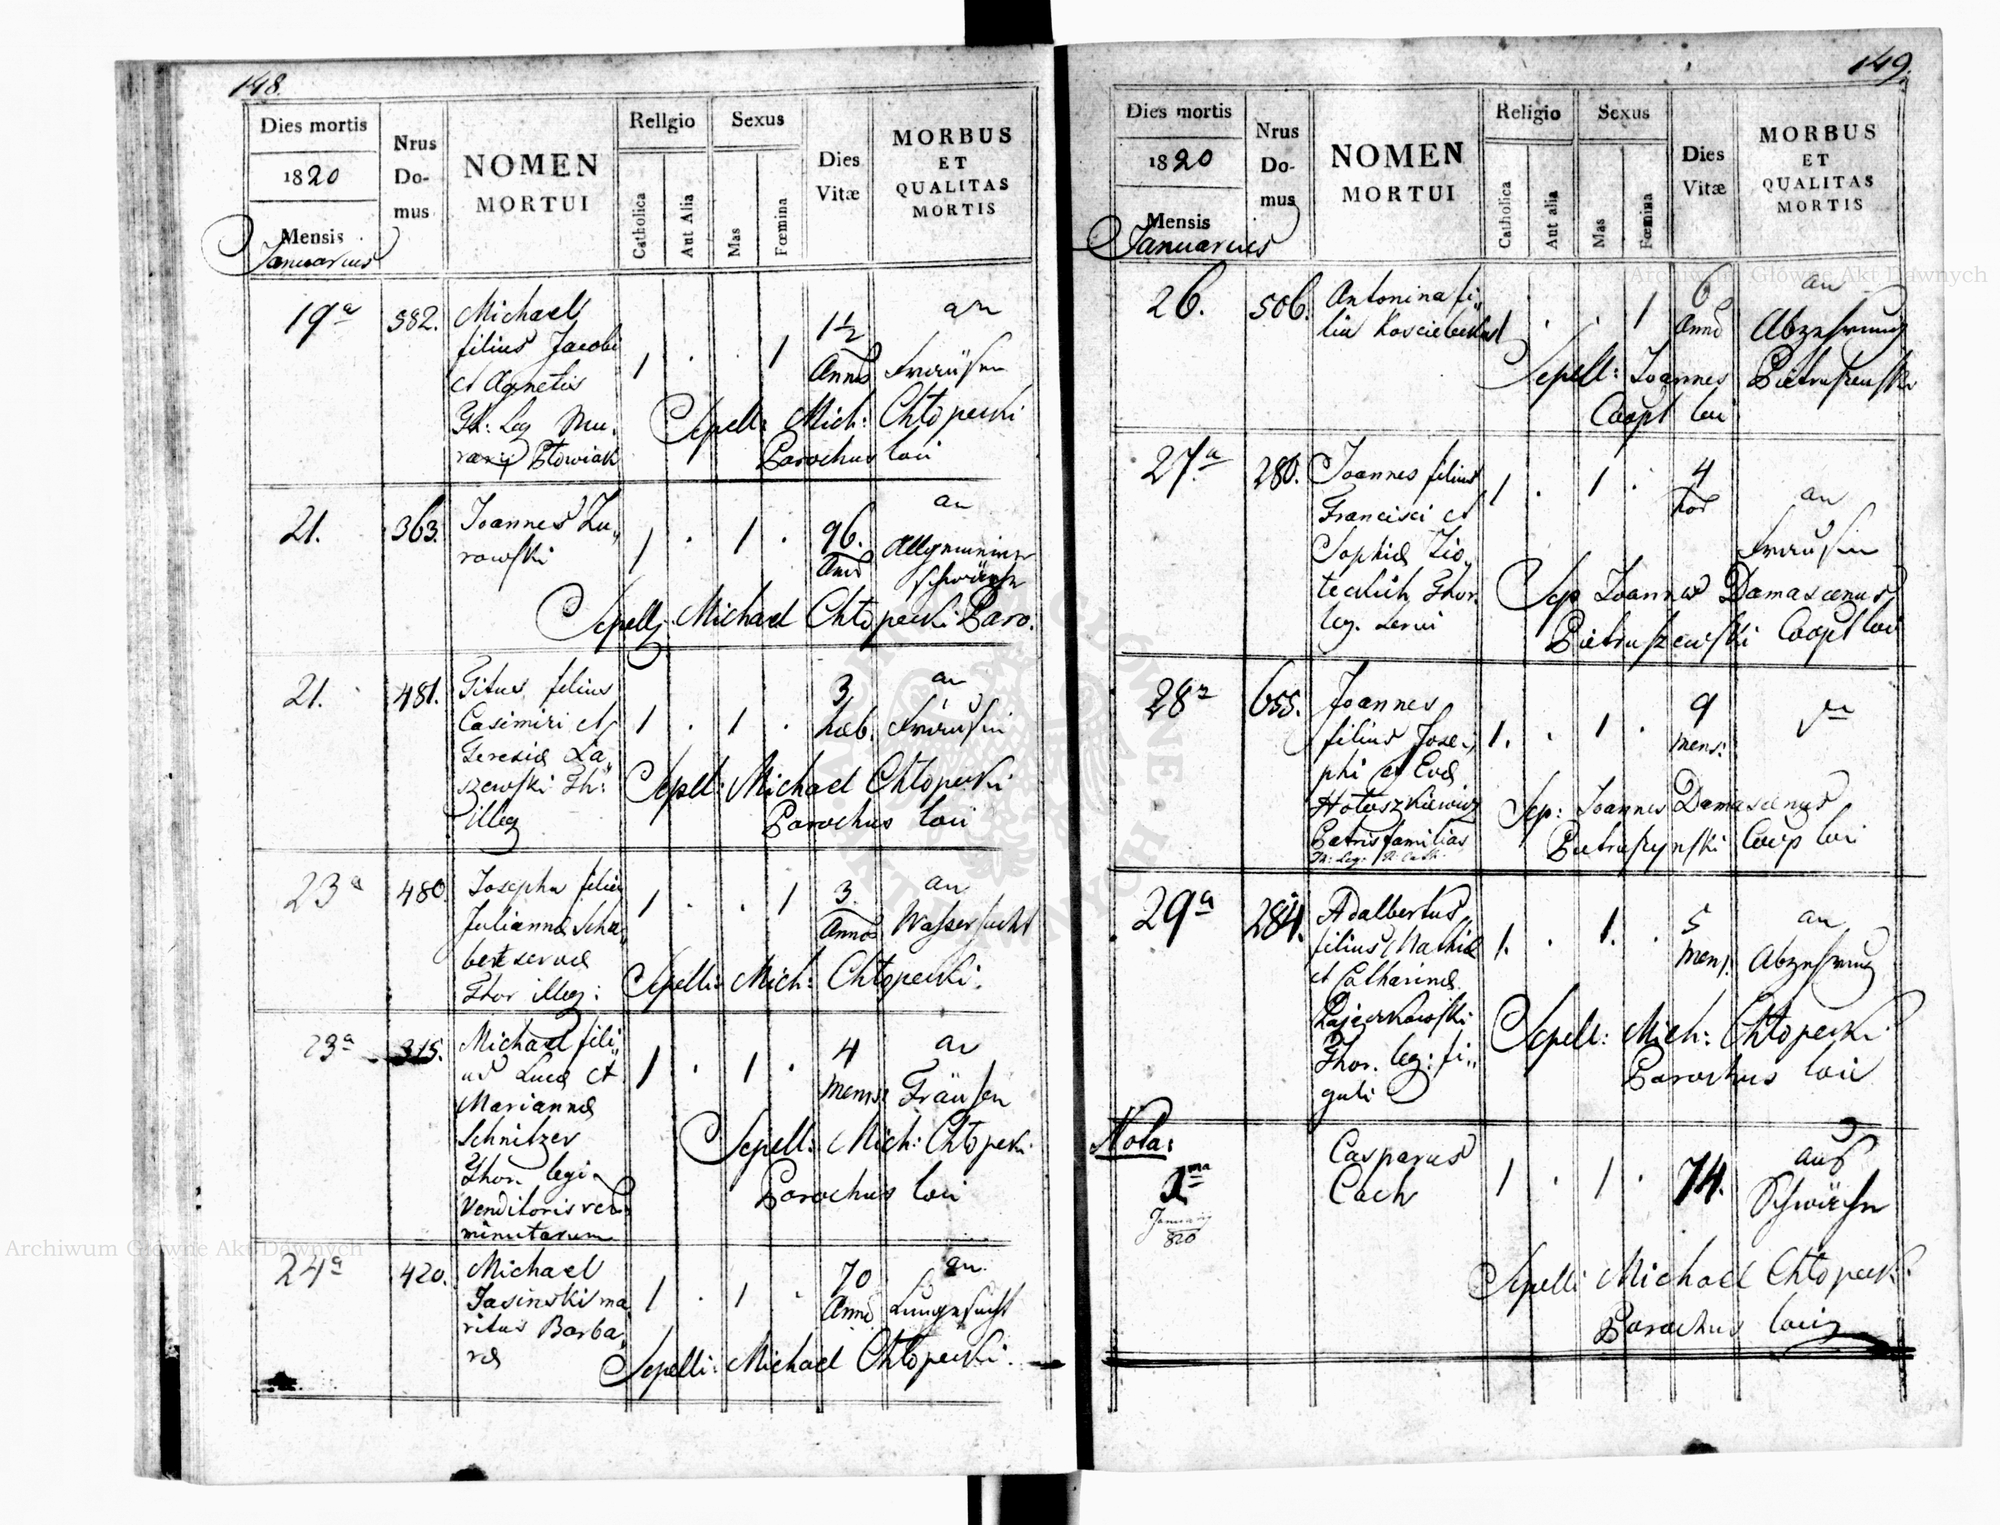 148.
Dies mortis
1820
Mensis
Januarius
Nrus
Do-
mus
NOMEN
MORTUI
Religio
Catholica
Aut Alia
Sexus
Mas
Fœmina
Dies
Vitæ
MORBUS
ET
QUALITAS
MORTIS
19a 382. Michael
filius Jacobi
et Agnetis
Th: Leg Mu-
rarij
1 . . 1
1½
Annos
an
Fraüsen
Sepell: Mich: Chłopecki
Parochus loci
21. 363. Joannes Żu-
rowski
1 . 1 .
96.
Ann
an
Allgemeiner
Schwäche
Sepell: Michael Chłopecki Paro.
21. 481. Titus filius
Casimiri et
Teresiæ La-
szewski Th:
illeg
1 . 1 .
3
heb.
an
Fraüsen
Sepell: Michael Chłopecki
Parochus loci
23a 480 Josepha filia
Julianna Scha-
bert servæ
Thor illeg:
1 . . 1
3.
Annos
an
Wassersucht
Sepelli: Mich: Chłopecki.
23a 315. Michael fili-
us Lucæ et
Mariannæ
Schnitzer
Thor. legi
Venditoris rerum
minutarum
1 . 1 .
4
mens:
an
Fräusen
Sepell: Mich: Chłopecki
Parochus loci
24a 420. Michael
Jasinski ma-
ritus Barba-
ræ
1 . 1 .
70
Anno
an
Lungesucht
Sepelli: Michael Chłopecki.
149.
Dies mortis
1820
Mensis
Januarius
Nrus
Do-
mus
NOMEN
MORTUI
Religio
Catholica
Aut alia
Sexus
Mas
Fœmina
Dies
Vitæ
MORBUS
ET
QUALITAS
MORTIS
26. 506. Antonina fi-
lia
. . 1
6
Anno
an
Abzehrung
Sepell: Joannes Pietruszewski
Coopt loci
27a 280. Joannes filius
Francisci et
Sophiæ Zio-
teckich Thor.
leg. servi
1 . 1 .
4
hor
an
Fraüsen
Sep Joannes Damascenus
Pietruszewski Coopt loci
28a 655. Joannes
filius Jose-
phi et Evæ
Hołoszkiewicz
Patris familias
Th: Leg:
1. . 1 .
9
mens:
Sep: Joannes Damascenus
Pietruszynski Coop loci
29a 284. Adalbertus
filius Mathiæ
et Catharinæ
Pajączkowski
Thor. leg: fi-
guli
1. . 1. .
5
mens.
an
Abzehrung
Sepell: Mich: Chłopecki
Parochus loci
Nota:
2ma
Januarij
820
Casparus
Cach
1 . 1 .
74.
aus
Schwäche
Sepelli Michael Chłopecki
Parochus loci
Archiwum Główne Akt Dawnych
Archiwum Główne Akt Dawnych